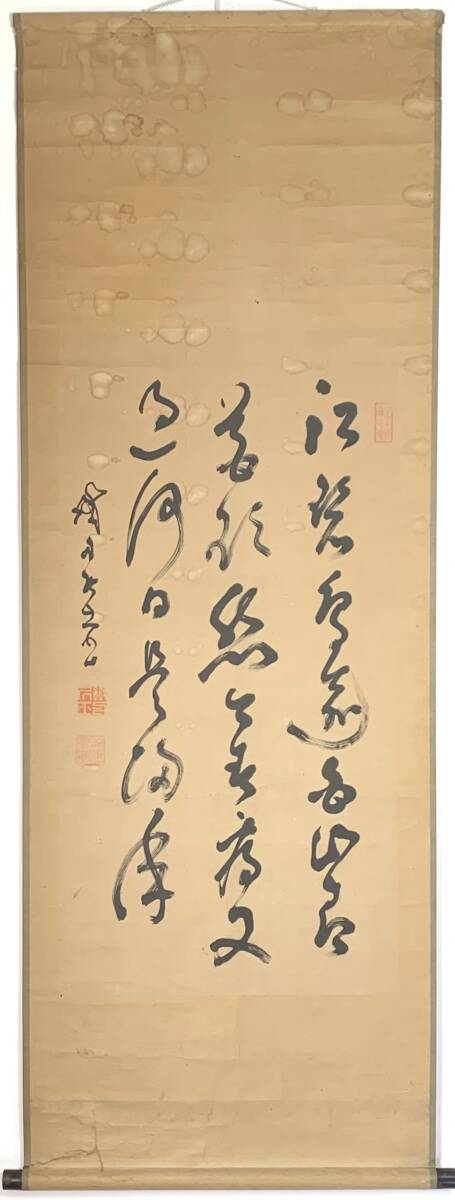 江碧鳥逾白山青
花欲然今春看又
過何日是歸年